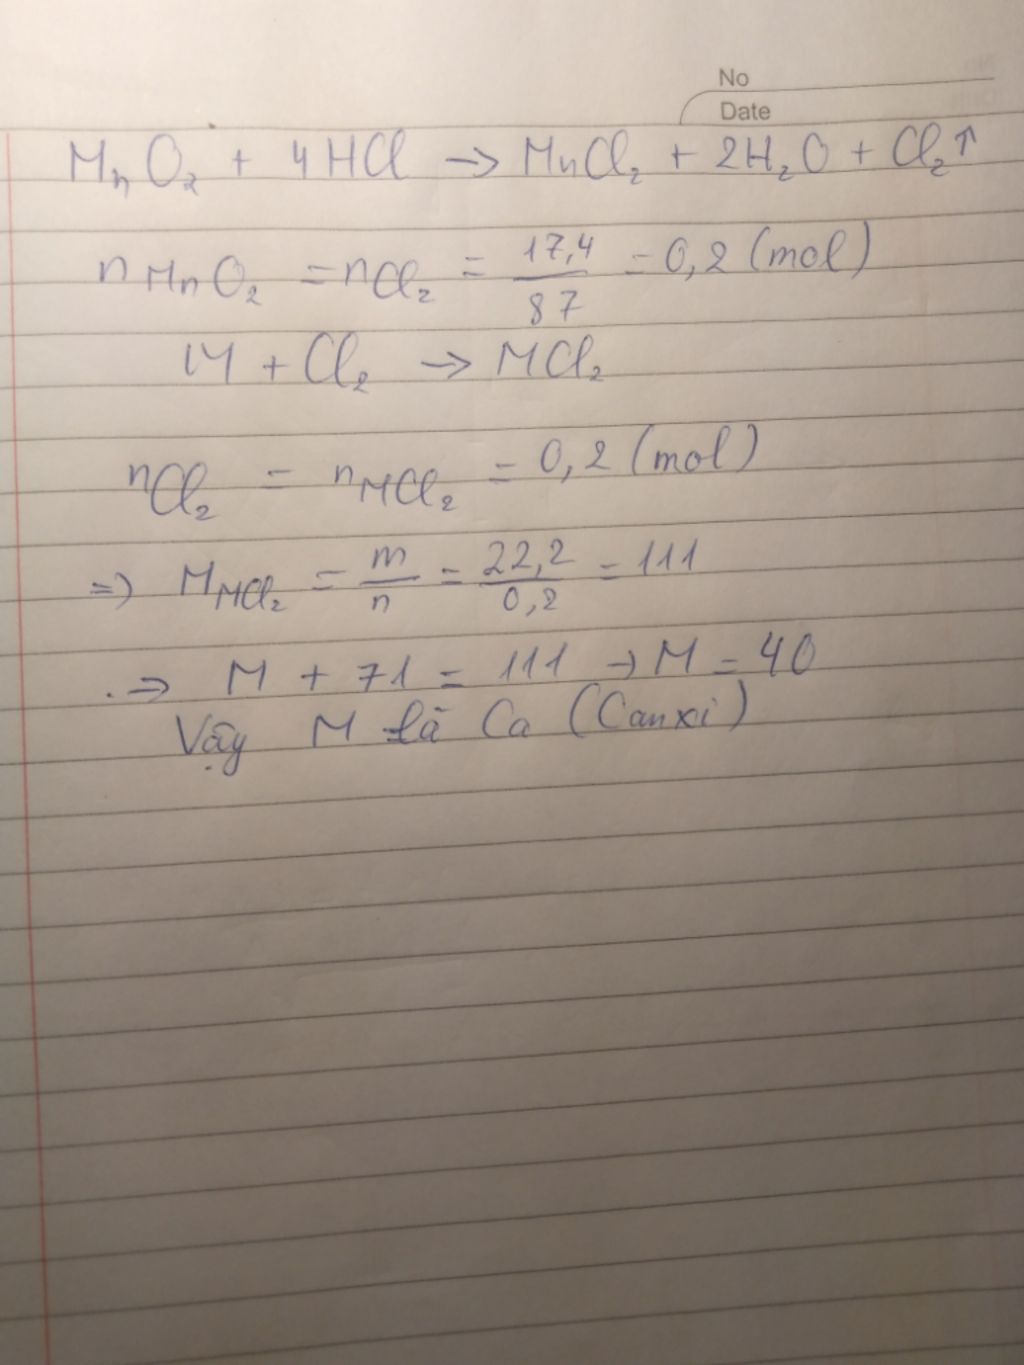 No
Date
MnO₂ + 4HCl → MnCl₂ + 2H₂O + Cl₂↑
nMnO₂ = nCl₂ = 17,4/87 = 0,2 (mol)
M + Cl₂ → MCl₂
nCl₂ = nMCl₂ = 0,2 (mol)
=) M MCl₂ = m/n = 22,2/0,2 = 111
.=> M + 71 = 111 → M = 40
Vậy M là Ca (Canxi)